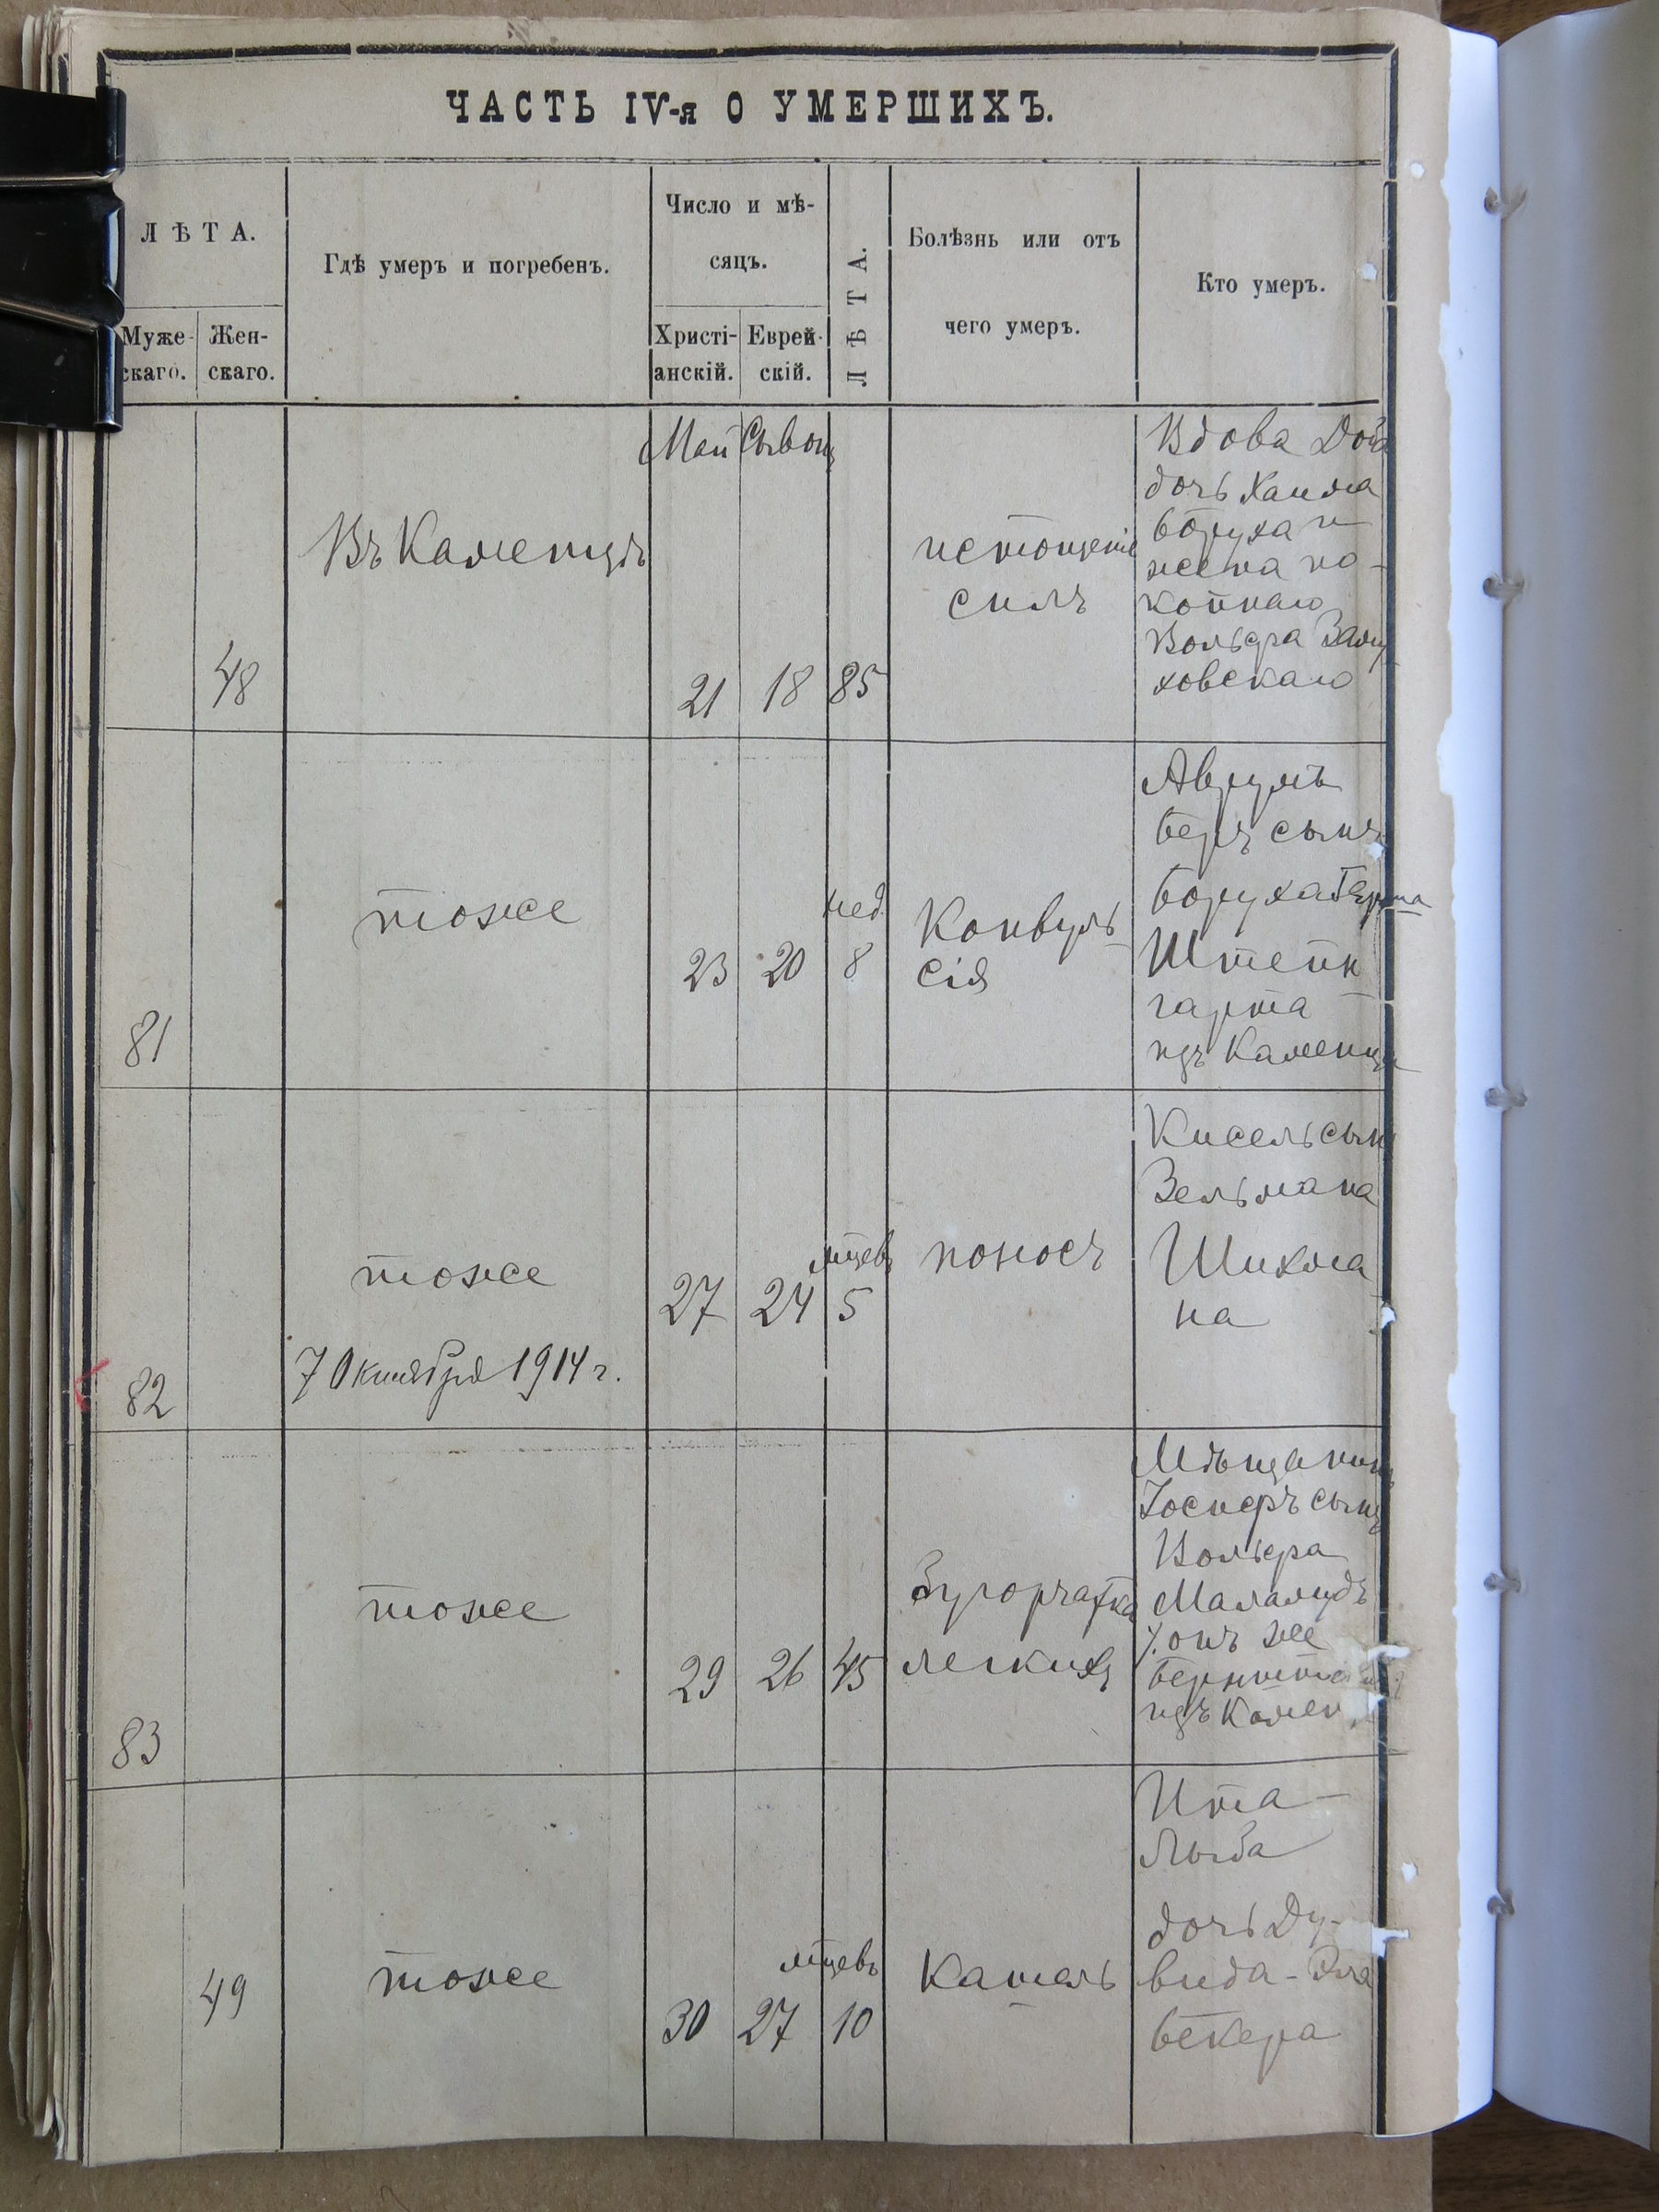 ЧАСТЬ IV-я О УМЕРШИХЪ.
ЛѢТА.
Муже-
скаго.
Жен-
скаго.
Гдѣ умеръ и погребенъ.
Число и мѣ-
сяцъ.
Христі-
анскій.
Еврей-
скій.
ЛѢТА.
Болѣзнь или отъ
чего умеръ.
Кто умеръ.
48
Въ Каменцѣ
Май
Сывонъ
21
18
85
истощеніе
силъ
Вдова
дочь Хаима
Боруха и
жена по-
койнаго
Вольфа
ховскаго
81
тоже
23
20
нед.
8
Конвуль-
сія
Аврумъ
Беръ сынъ
Боруха Герша
Штейн
гарта
изъ Каменца
82
тоже
7 Октября 1914 г.
27
24
мцевъ
5
поносъ
Кисель сынъ
Зельмана
Шихма
на
83
тоже
29
26
45
Бугорчатка
легкихъ
Мѣщанинъ
Іосифъ сынъ
Вольфа
Маламудъ
онъ же
изъ Камен
49
тоже
30
27
мцевъ
10
Кашель
Ита-
Лыба
дочь Ду-
вида-Эля
Бекера